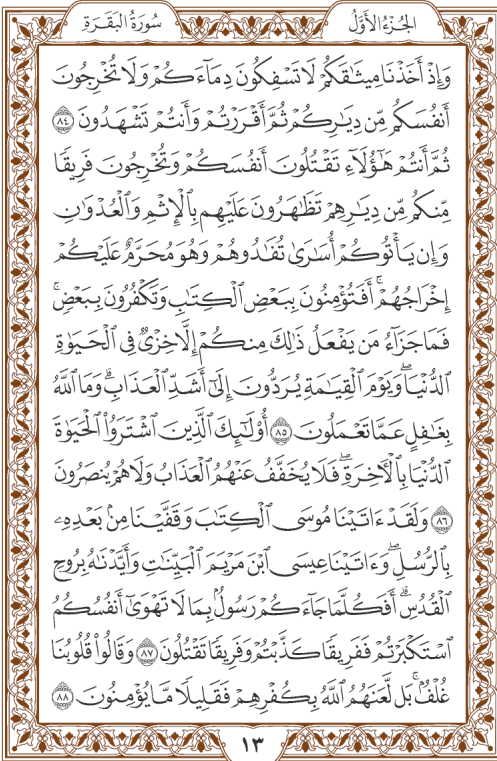 الجُزْءُ الأَوَّلُ
سُورَةُ البَقَرَةِ
وَإِذۡ أَخَذۡنَا مِيثَٰقَكُمۡ لَا تَسۡفِكُونَ دِمَآءَكُمۡ وَلَا تُخۡرِجُونَ
أَنفُسَكُم مِّن دِيَٰرِكُمۡ ثُمَّ أَقۡرَرۡتُمۡ وَأَنتُمۡ تَشۡهَدُونَ ٨٤
ثُمَّ أَنتُمۡ هَٰٓؤُلَآءِ تَقۡتُلُونَ أَنفُسَكُمۡ وَتُخۡرِجُونَ فَرِيقٗا
مِّنكُم مِّن دِيَٰرِهِمۡ تَظَٰهَرُونَ عَلَيۡهِم بِٱلۡإِثۡمِ وَٱلۡعُدۡوَٰنِ
وَإِن يَأۡتُوكُمۡ أُسَٰرَىٰ تُفَٰدُوهُمۡ وَهُوَ مُحَرَّمٌ عَلَيۡكُمۡ
إِخۡرَاجُهُمۡۚ أَفَتُؤۡمِنُونَ بِبَعۡضِ ٱلۡكِتَٰبِ وَتَكۡفُرُونَ بِبَعۡضٖۚ
فَمَا جَزَآءُ مَن يَفۡعَلُ ذَٰلِكَ مِنكُمۡ إِلَّا خِزۡيٞ فِي ٱلۡحَيَوٰةِ
ٱلدُّنۡيَاۖ وَيَوۡمَ ٱلۡقِيَٰمَةِ يُرَدُّونَ إِلَىٰٓ أَشَدِّ ٱلۡعَذَابِۗ وَمَا ٱللَّهُ
بِغَٰفِلٍ عَمَّا تَعۡمَلُونَ ٨٥ أُوْلَٰٓئِكَ ٱلَّذِينَ ٱشۡتَرَوُاْ ٱلۡحَيَوٰةَ
ٱلدُّنۡيَا بِٱلۡأٓخِرَةِۖ فَلَا يُخَفَّفُ عَنۡهُمُ ٱلۡعَذَابُ وَلَا هُمۡ يُنصَرُونَ
٨٦ وَلَقَدۡ ءَاتَيۡنَا مُوسَى ٱلۡكِتَٰبَ وَقَفَّيۡنَا مِنۢ بَعۡدِهِۦ
بِٱلرُّسُلِۖ وَءَاتَيۡنَا عِيسَى ٱبۡنَ مَرۡيَمَ ٱلۡبَيِّنَٰتِ وَأَيَّدۡنَٰهُ بِرُوحِ
ٱلۡقُدُسِۗ أَفَكُلَّمَا جَآءَكُمۡ رَسُولُۢ بِمَا لَا تَهۡوَىٰٓ أَنفُسُكُمُ
ٱسۡتَكۡبَرۡتُمۡ فَفَرِيقٗا كَذَّبۡتُمۡ وَفَرِيقٗا تَقۡتُلُونَ ٨٧ وَقَالُواْ قُلُوبُنَا
غُلۡفُۢۚ بَل لَّعَنَهُمُ ٱللَّهُ بِكُفۡرِهِمۡ فَقَلِيلٗا مَّا يُؤۡمِنُونَ ٨٨
١٣